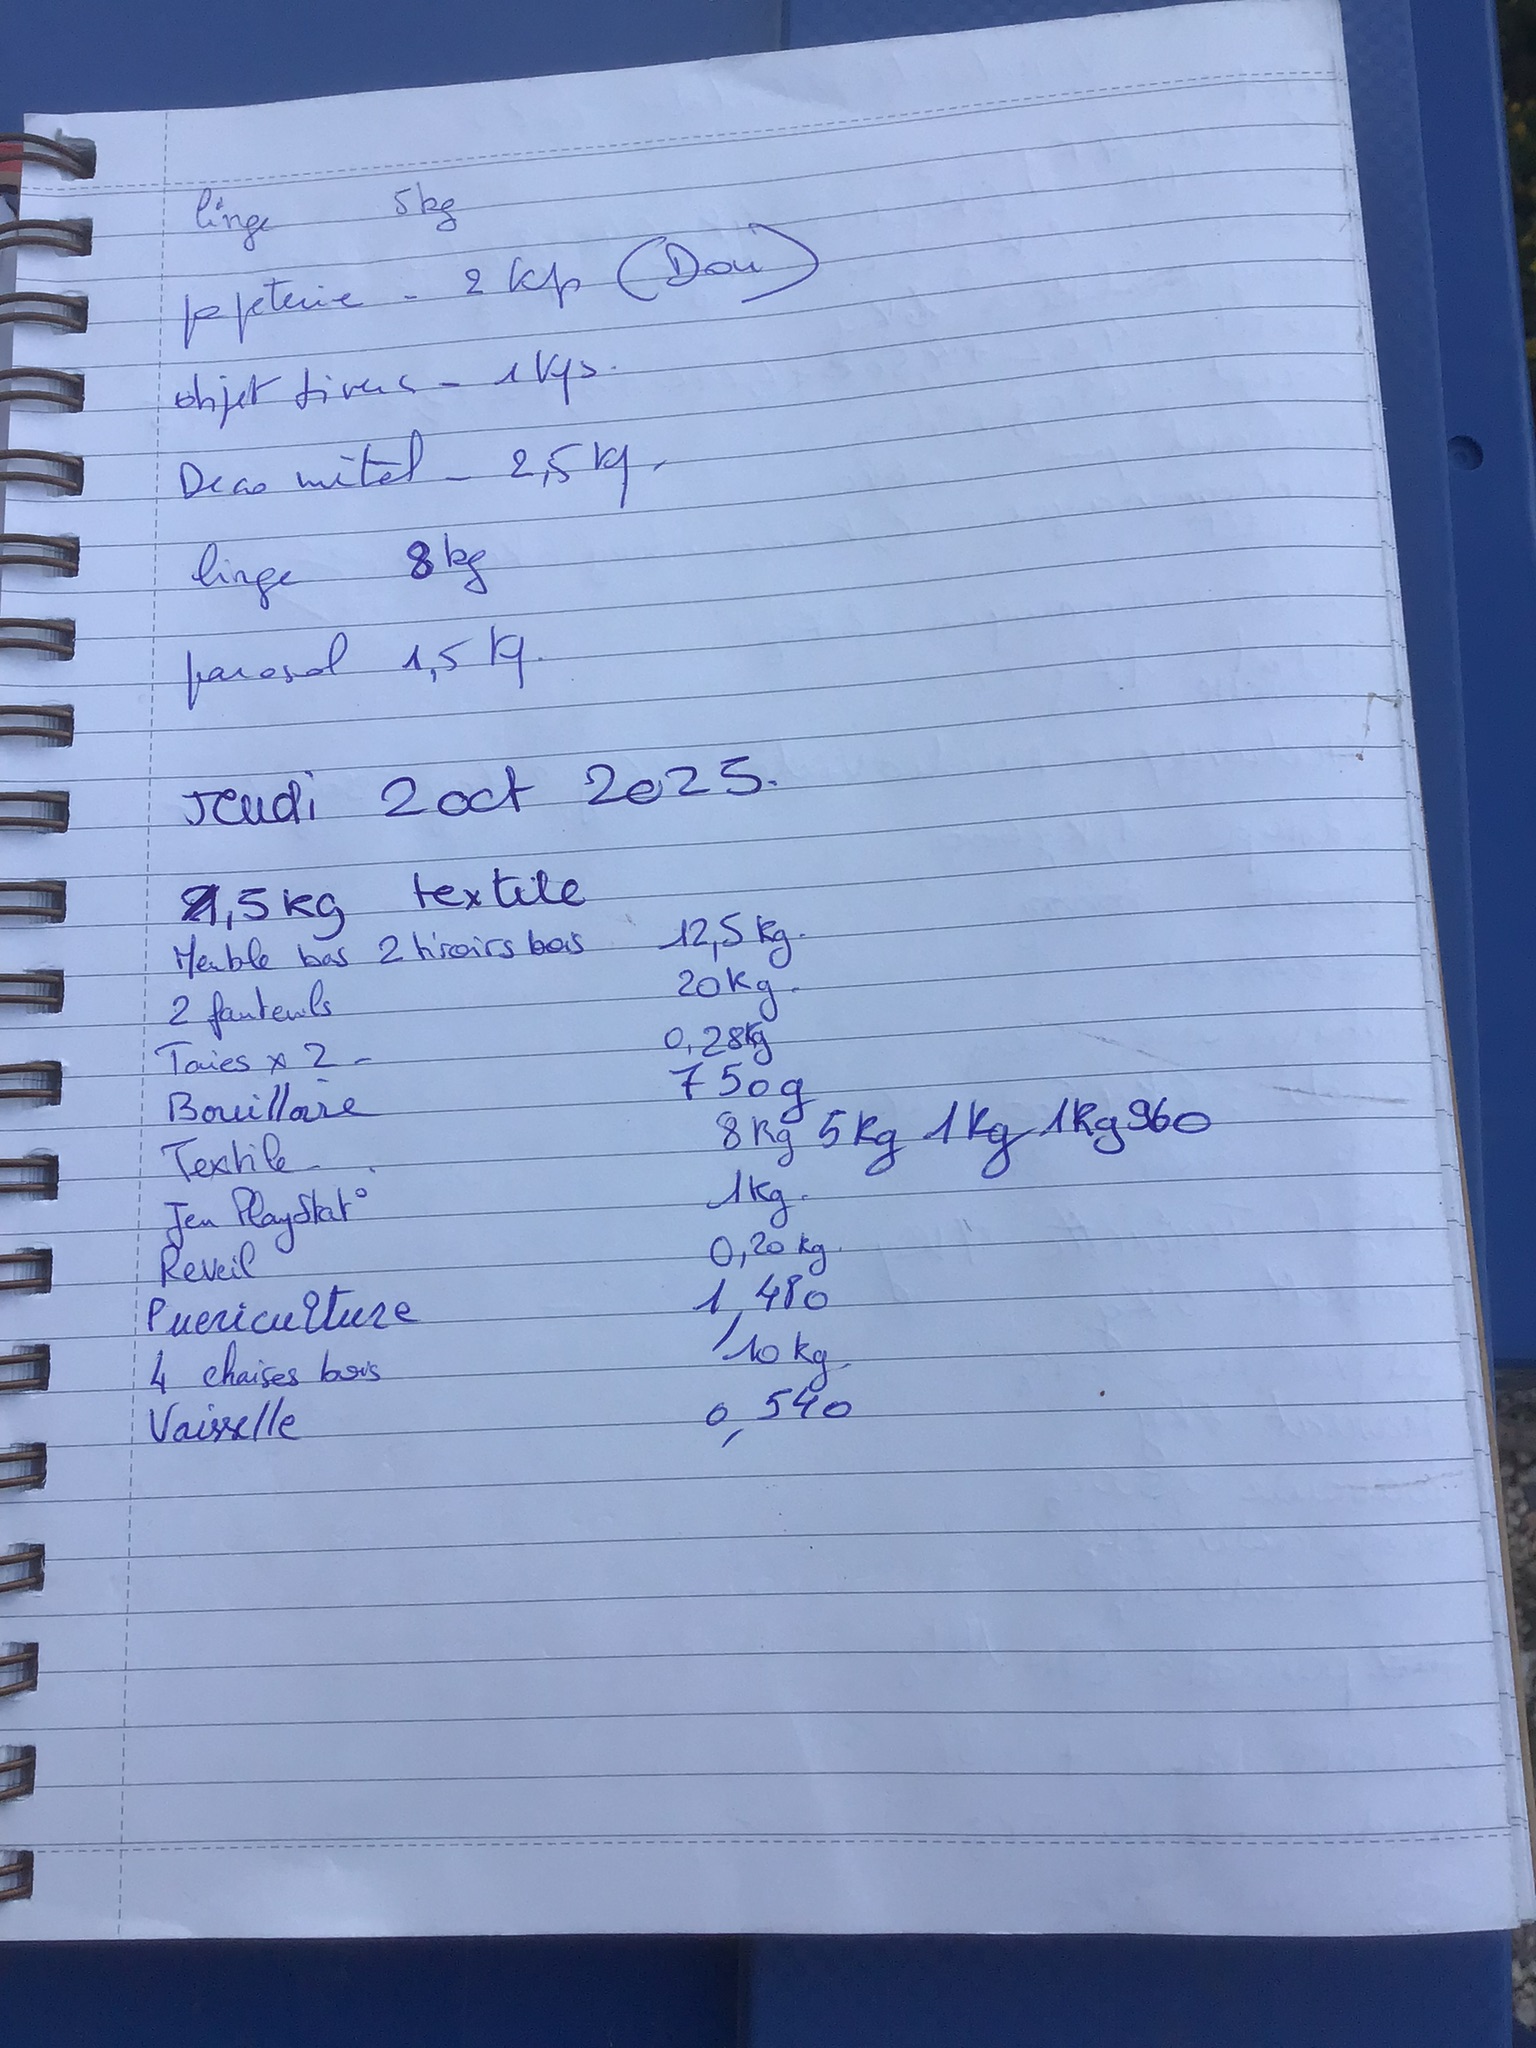 linge 5kg
papeterie - 2 kgs (Don)
objet divers - 1 kgs.
Deco métal - 2,5 kg.
linge 8kg
parasol 1,5 kg.
Jeudi 2 oct 2025.
,5kg textile
Meuble bas 2 tiroirs bois 12,5 kg.
2 fauteuils 20kg.
Taies x 2 - 0,28kg
Bouilloire 750g
Textile 8kg 5kg 1kg 1kg960
Jeu Playstat° 1kg.
Reveil 0,20 kg.
Puericulture 1,480
4 chaises bois 10 kg.
Vaisselle 0,540